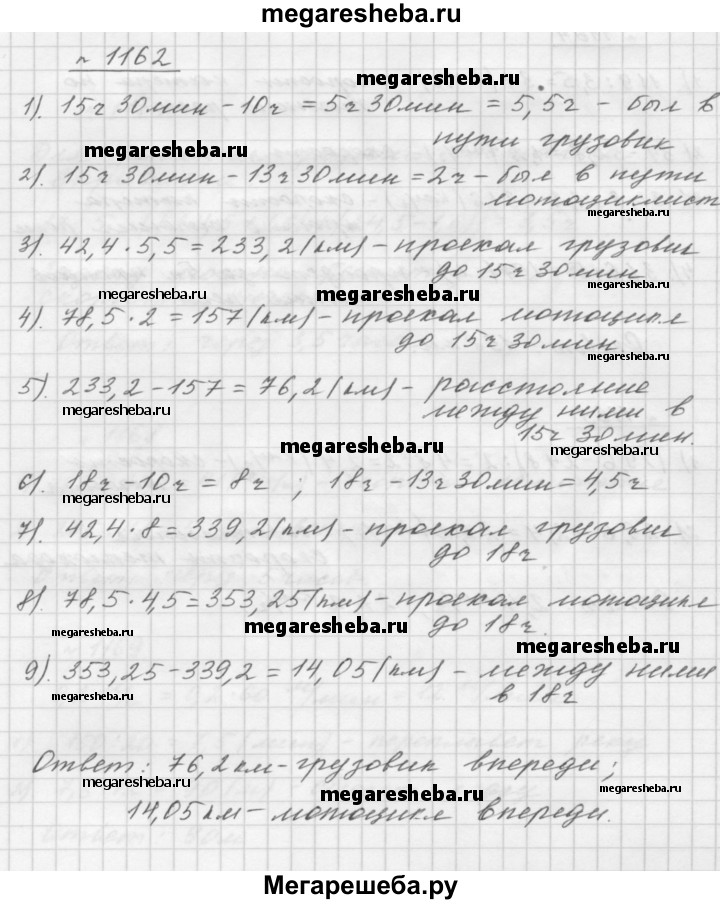 megaresheba.ru
n 1162
megaresheba.ru
1). 15ч 30мин - 10ч = 5ч 30мин = 5,5ч - был в
пути грузовик
megaresheba.ru
2). 15ч 30мин - 13ч 30мин = 2ч - был в пути
мотоциклист
megaresheba.ru
3). 42,4 · 5,5 = 233,2 (км) - проехал грузовик
до 15ч 30мин
megaresheba.ru
megaresheba.ru
megaresheba.ru
4). 78,5 · 2 = 157 (км) - проехал мотоцикл
до 15ч 30мин
megaresheba.ru
5). 233,2 - 157 = 76,2 (км) - расстояние
megaresheba.ru
между ними в
15ч 30мин.
megaresheba.ru
megaresheba.ru
6). 18ч - 10ч = 8ч ; 18ч - 13ч 30мин = 4,5ч
megaresheba.ru
megaresheba.ru
7). 42,4 · 8 = 339,2 (км) - проехал грузовик
до 18ч
megaresheba.ru
8). 78,5 · 4,5 = 353,25 (км) - проехал мотоцикл
до 18ч.
megaresheba.ru
megaresheba.ru
megaresheba.ru
9). 353,25 - 339,2 = 14,05 (км) - между ними
в 18ч
megaresheba.ru
megaresheba.ru
Ответ: 76,2 км - грузовик впереди;
megaresheba.ru
megaresheba.ru
megaresheba.ru
14,05 км - мотоцикл впереди.
megaresheba.ru
Мегарешеба.ру